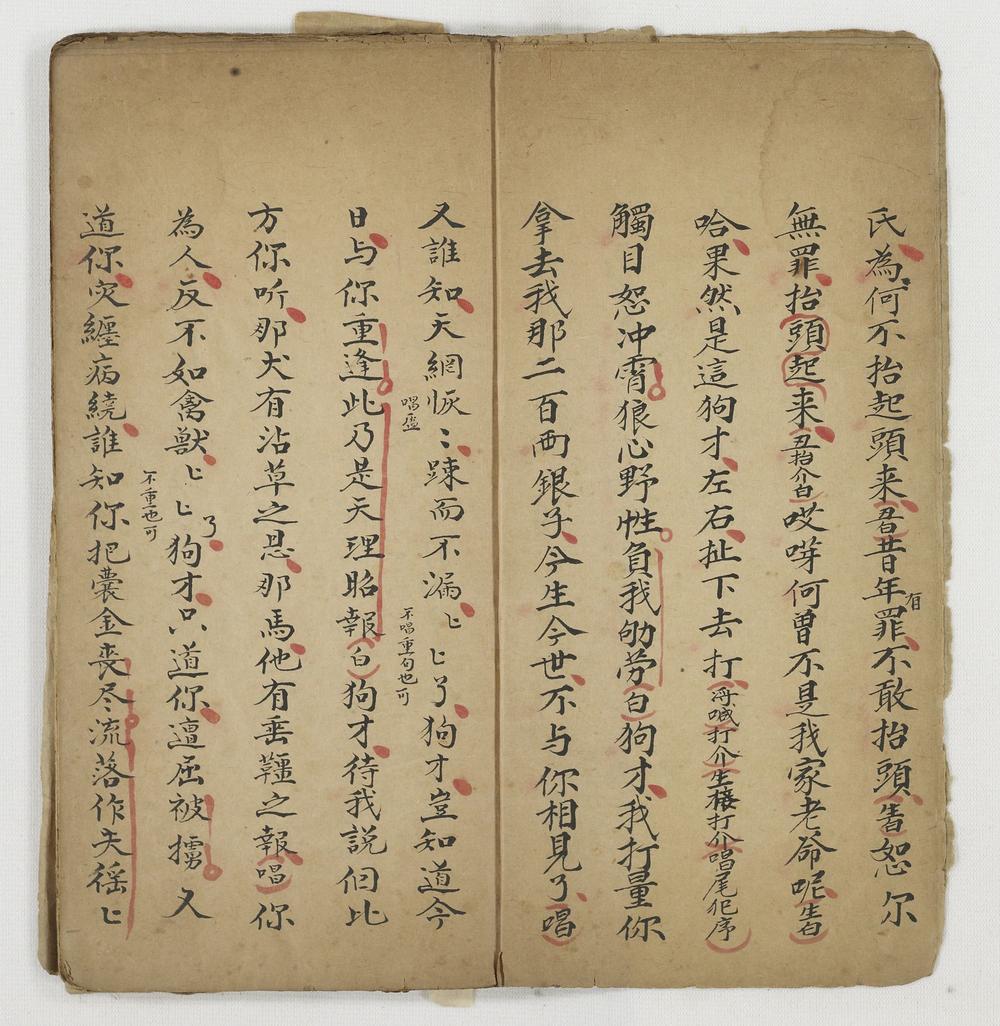 氏為何不抬起頭来丑昔年有罪不敢抬頭生白恕尔
無罪抬頭起来丑抬介白哎呀何曾不是我家老爺呢生白
哈果然是這狗才左右扯下去打淨喊打介生樓打介唱尾犯序
觸目恕冲霄狼心野性負我劬劳白狗才我打量你
拿去我那二百両銀子今生今世不与你相見了唱
又誰知天網恢〻踈而不漏〻〻了狗才豈知道今
唱盔
不唱重句也可
日与你重逢此乃是天理昭報白狗才待我説但比
方你听那犬有沾草之恩那馬他有垂韁之報唱你
為人反不如禽獣〻〻了狗才只道你邅屈被擄又
不重也可
道你灾纏病繞誰知你把囊金丧尽流落作夫徭〻